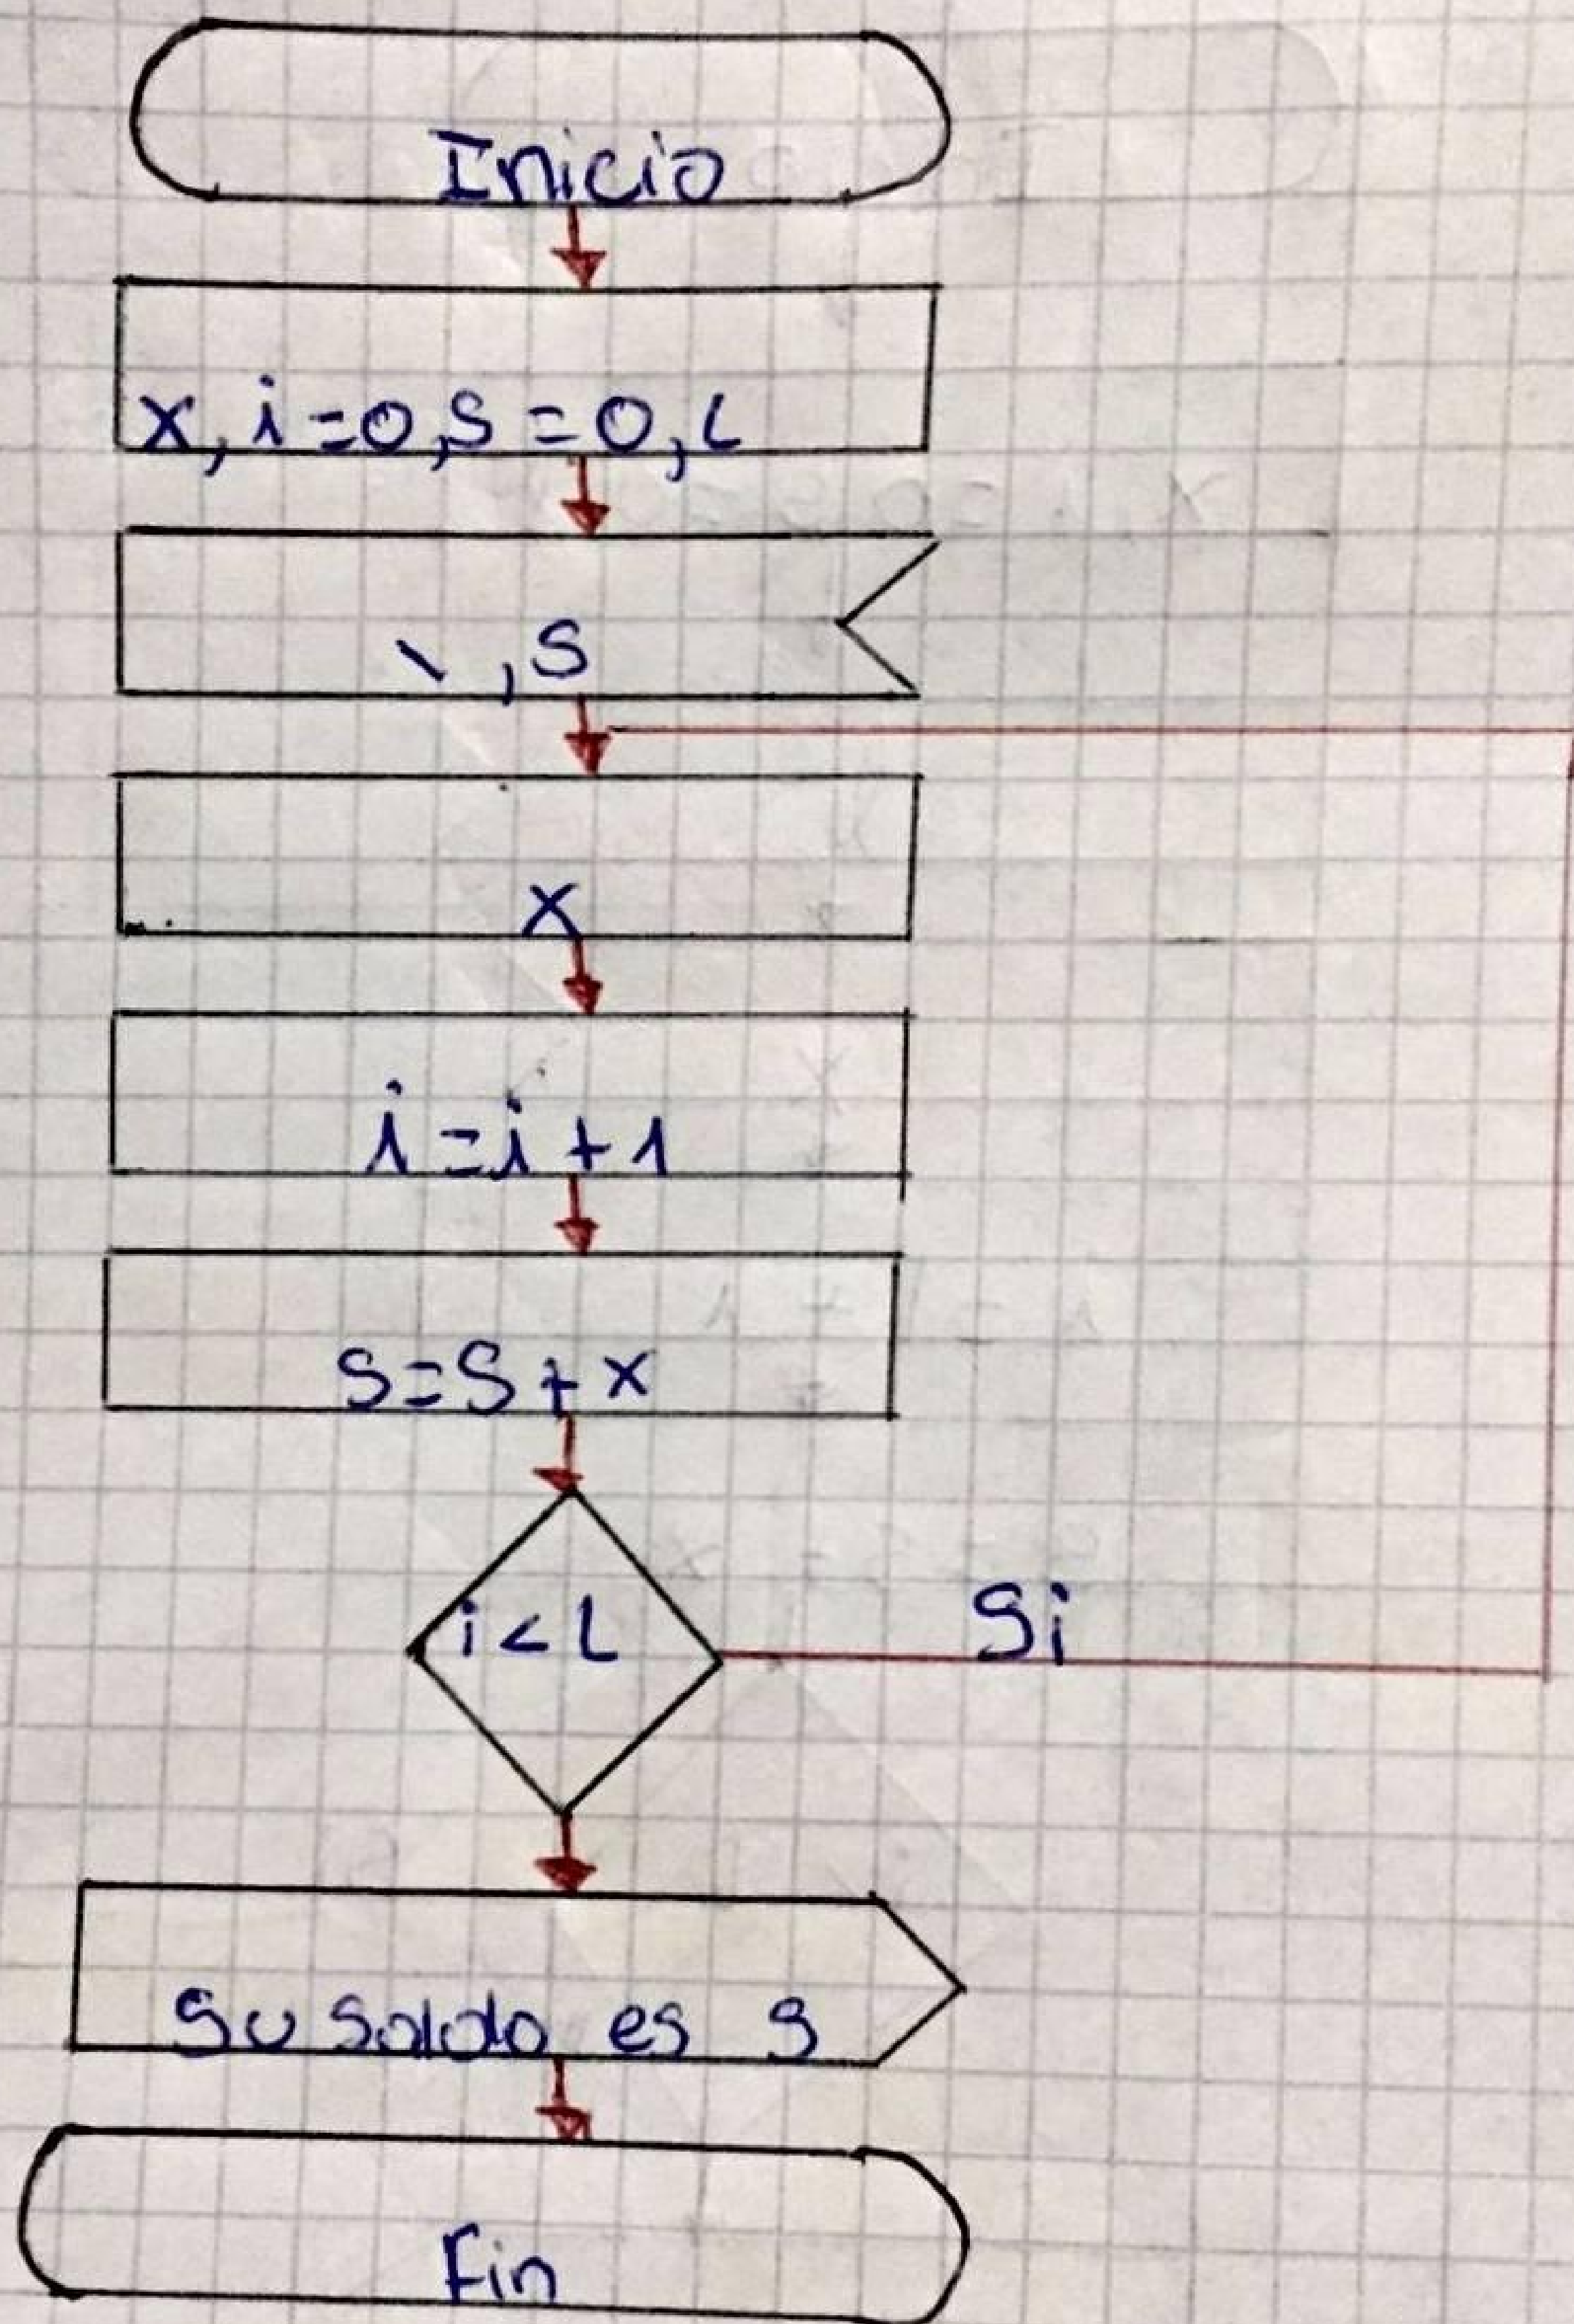 Inicio
x, i=0,S=0,L
\ ,S
x
i=i+1
S=S+x
i<L
Si
Su saldo es S
Fin